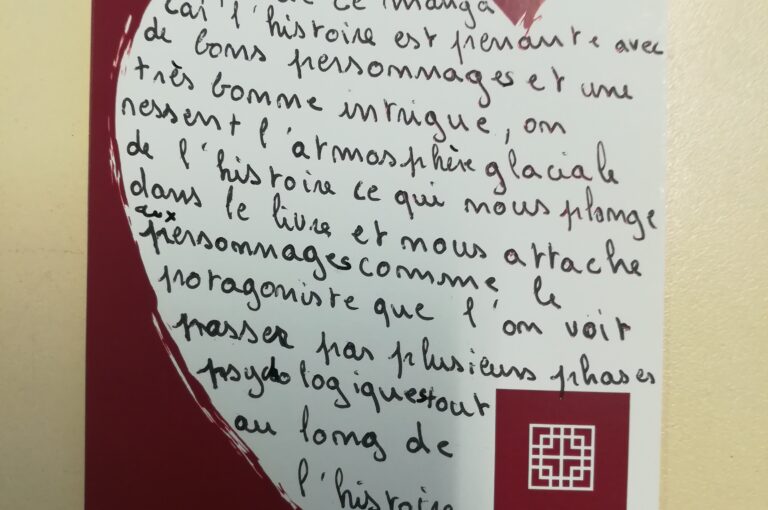 ce manga
car l'histoire est prenante avec
de bons personnages et une
très bonne intrigue, on
ressent l'atmosphère glaciale
de l'histoire ce qui nous plonge
dans le livre et nous attache
aux
personnages comme le
potagoniste que l'on voit
passer par plusieurs phases
psychologiques tout
au long de
l'histoire